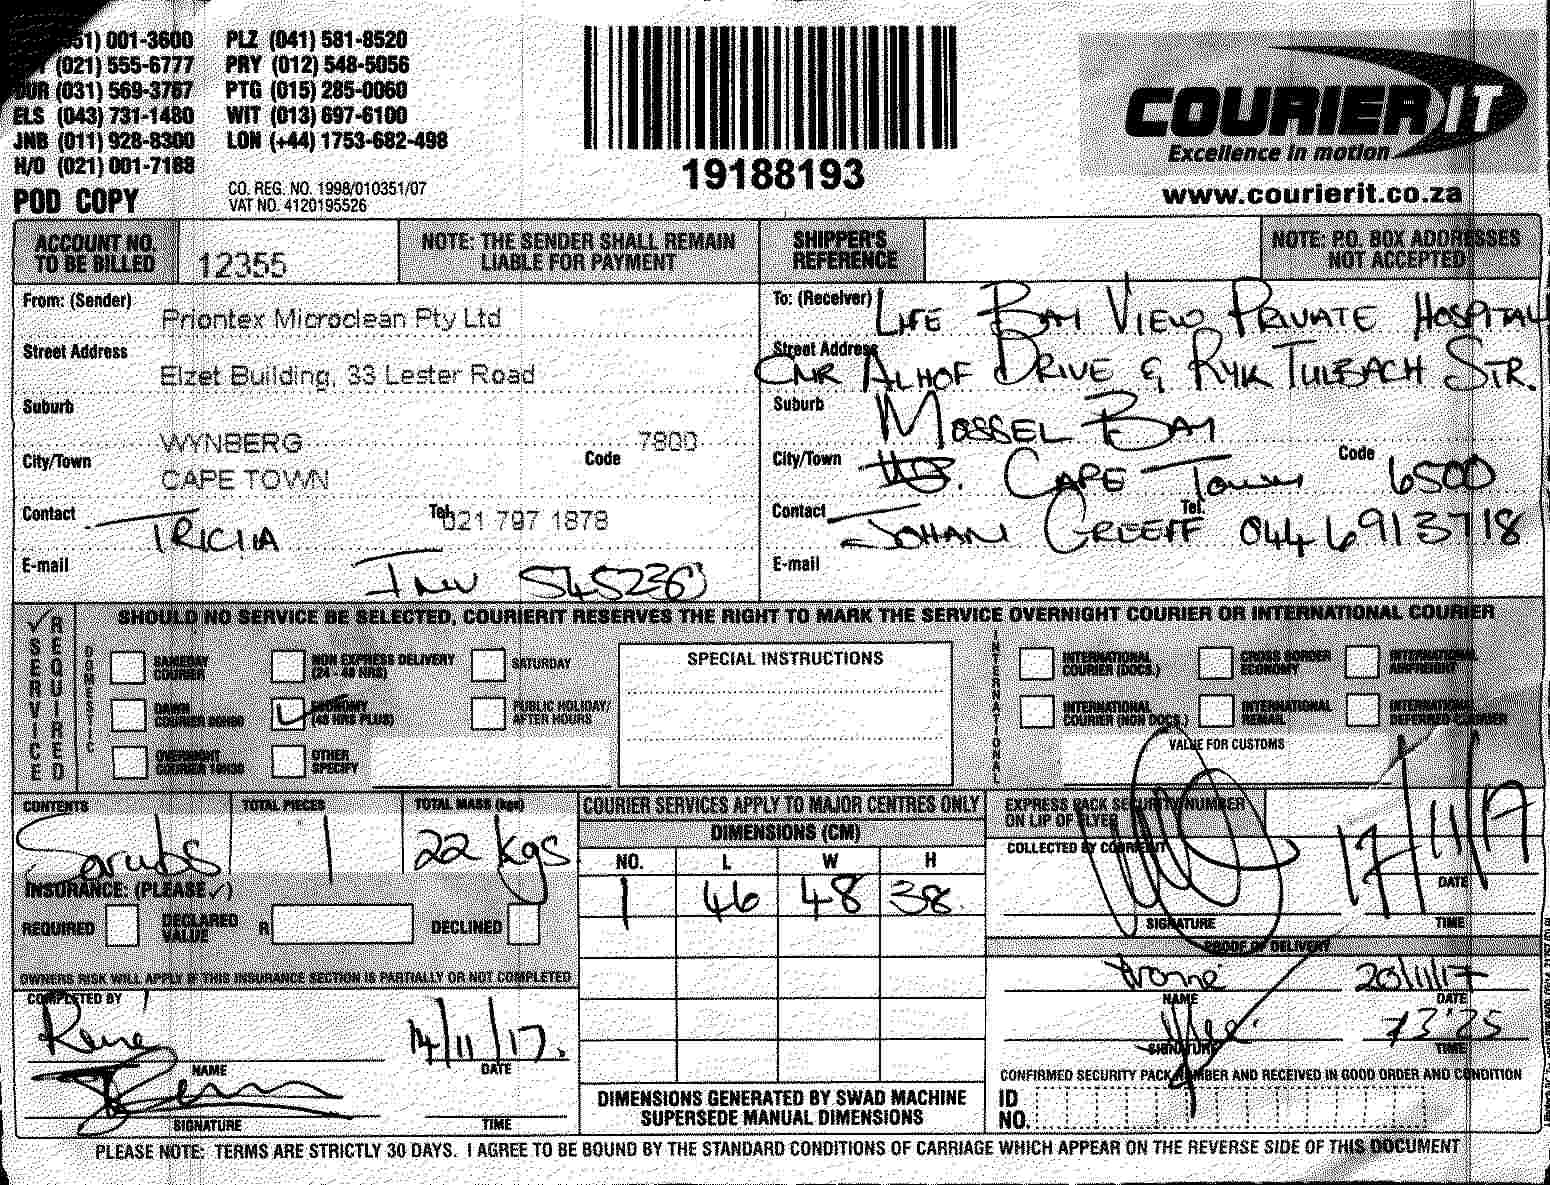 51) 001-3600 PLZ (041) 581-8520
(021) 555-6777 PRY (012) 548-5056
DUR (031) 569-3767 PTG (015) 285-0060
ELS (043) 731-1480 WIT (013) 697-6100
JNB (011) 928-8300 LON (+44) 1753-682-498
H/O (021) 001-7188
POD COPY
CO. REG. NO. 1998/010351/07
VAT NO. 4120195526
19188193
COURIER IT
Excellence in motion
www.courierit.co.za
ACCOUNT NO. TO BE BILLED 12355
NOTE: THE SENDER SHALL REMAIN LIABLE FOR PAYMENT
SHIPPER'S REFERENCE
NOTE: P.O. BOX ADDRESSES NOT ACCEPTED
From: (Sender) Priontex Microclean Pty Ltd
Street Address Elzet Building, 33 Lester Road
Suburb WYNBERG
Code 7800
City/Town CAPE TOWN
Contact TRICIA Tel. 021 797 1878
E-mail
Inv 545236
To: (Receiver) LIFE BAY VIEW PRIVATE HOSPITAL
Street Address CNR ALHOF DRIVE & RYK TULBACH STR.
Suburb MOSSEL BAY
City/Town CAPE TOWN Code 6500
Contact JOHAN GREEFF Tel. 044 6913718
E-mail
SHOULD NO SERVICE BE SELECTED, COURIERIT RESERVES THE RIGHT TO MARK THE SERVICE OVERNIGHT COURIER OR INTERNATIONAL COURIER
✓ SERVICE REQUIRED
DOMESTIC
SAMEDAY COURIER
NON EXPRESS DELIVERY (24 - 48 HRS)
SATURDAY
DAWN COURIER
ECONOMY (48 HRS PLUS)
PUBLIC HOLIDAY/ AFTER HOURS
OVERNIGHT COURIER 10H30
OTHER SPECIFY
SPECIAL INSTRUCTIONS
INTERNATIONAL
INTERNATIONAL COURIER (DOCS.)
CROSS BORDER ECONOMY
INTERNATIONAL AIRFREIGHT
INTERNATIONAL COURIER (NON DOCS.)
INTERNATIONAL REMAIL
INTERNATIONAL DEFERRED COURIER
VALUE FOR CUSTOMS
CONTENTS Scrubs
TOTAL PIECES 1
TOTAL MASS (kgs) 22 kgs
INSURANCE: (PLEASE ✓)
REQUIRED DECLARED VALUE R DECLINED
OWNERS RISK WILL APPLY IF THIS INSURANCE SECTION IS PARTIALLY OR NOT COMPLETED
COMPLETED BY
Rene 14/11/17.
NAME DATE
SIGNATURE TIME
COURIER SERVICES APPLY TO MAJOR CENTRES ONLY
DIMENSIONS (CM)
NO. L W H
1 46 48 38
DIMENSIONS GENERATED BY SWAD MACHINE
SUPERSEDE MANUAL DIMENSIONS
EXPRESS PACK SECURITY NUMBER
ON LIP OF FLYER
COLLECTED BY COURIERIT
17/11/17
DATE
SIGNATURE TIME
PROOF OF DELIVERY
20/11/17
NAME DATE
13:25
SIGNATURE TIME
CONFIRMED SECURITY PACK NUMBER AND RECEIVED IN GOOD ORDER AND CONDITION
ID NO.
PLEASE NOTE: TERMS ARE STRICTLY 30 DAYS. I AGREE TO BE BOUND BY THE STANDARD CONDITIONS OF CARRIAGE WHICH APPEAR ON THE REVERSE SIDE OF THIS DOCUMENT